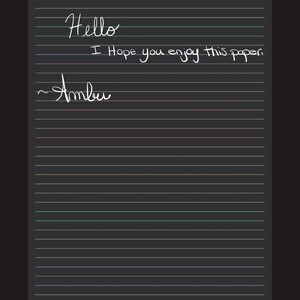 Hello
I Hope you enjoy this paper.
~Amber